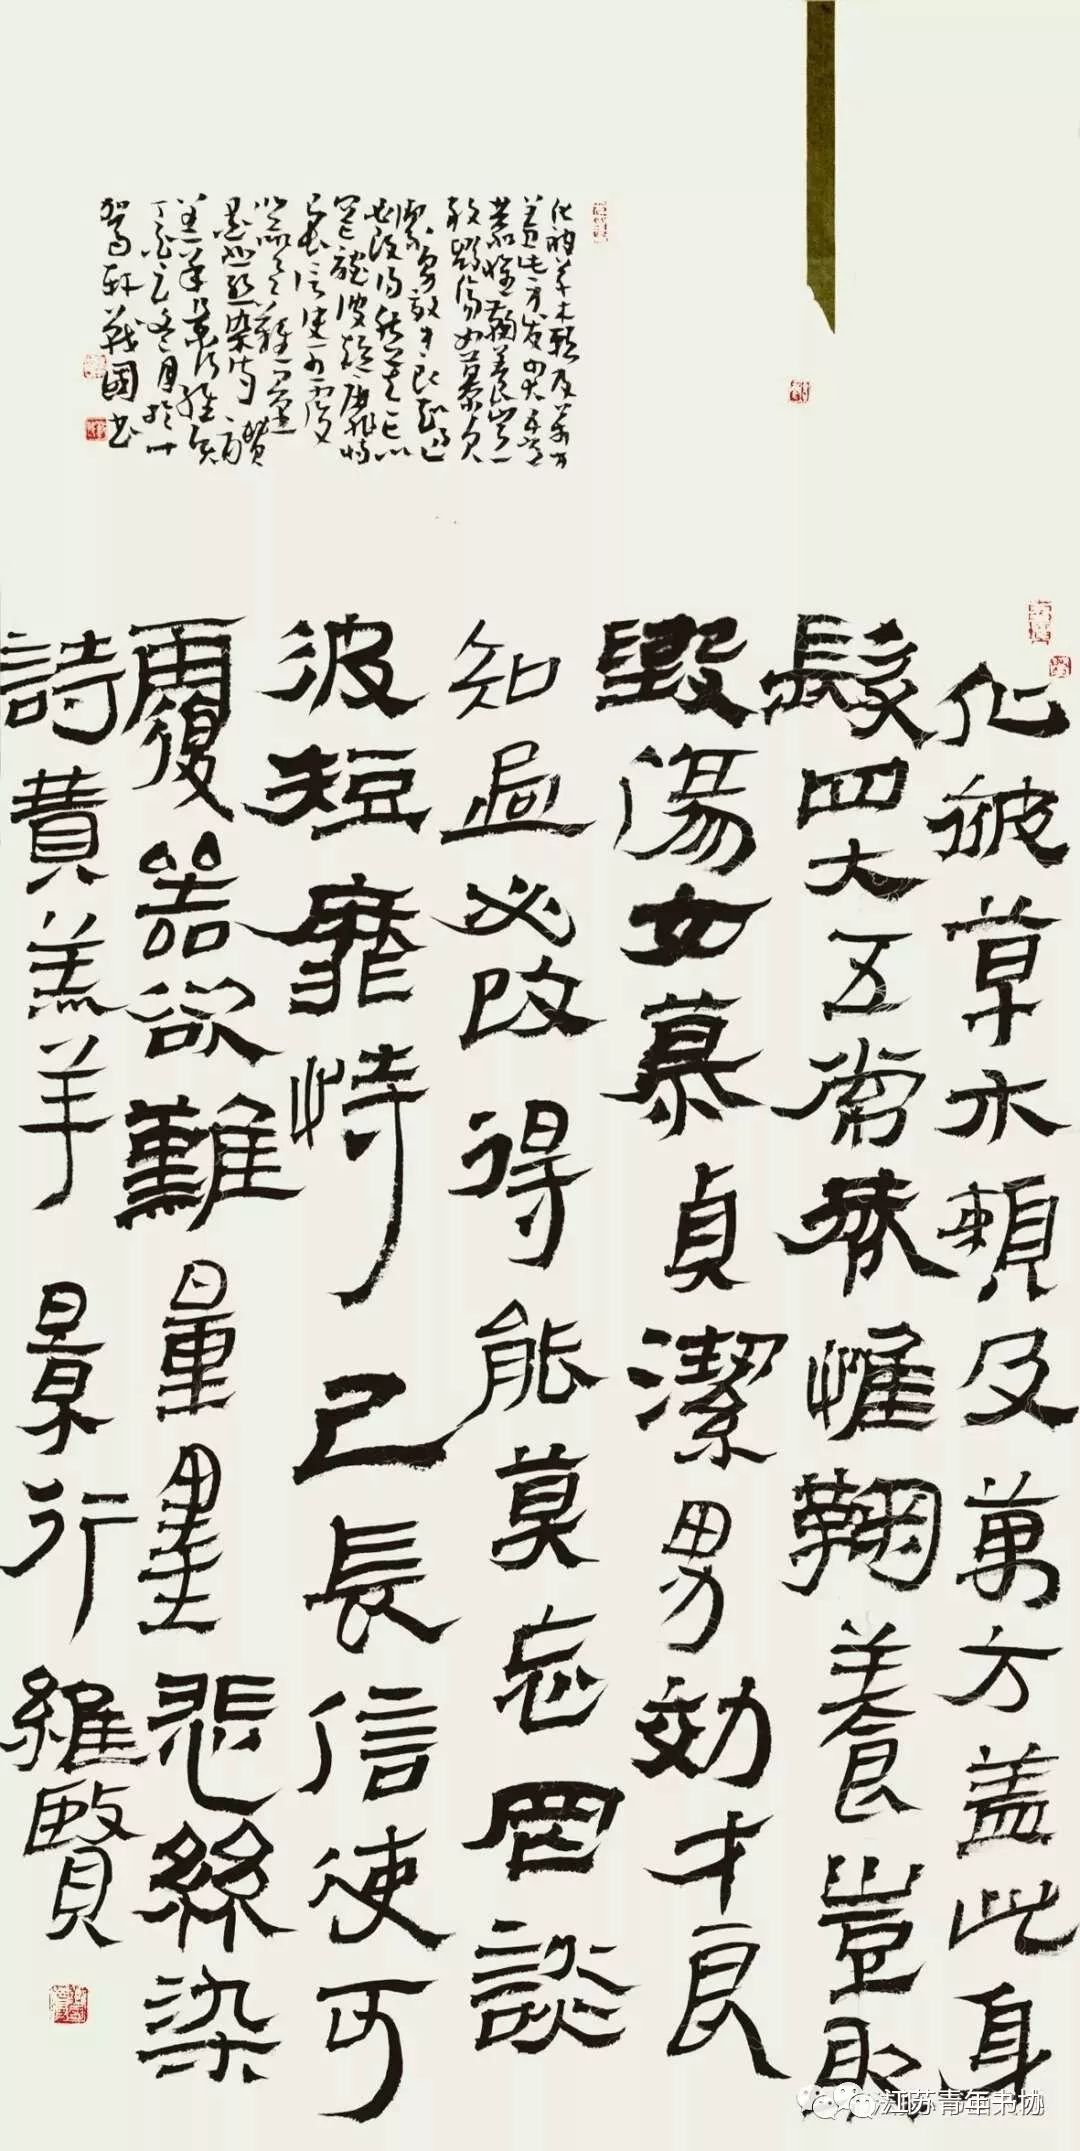 化被草木賴及萬方盖此身
髮四大五常恭惟鞠養豈敢
毀傷女慕貞潔男効才良
知過必改得能莫忘罔談
彼短靡恃己長信使可
覆器欲難量墨悲絲染
詩贊羔羊景行維賢
化被草木賴及萬方
盖此身髮四大五常
恭惟鞠養豈
敢毀傷女慕貞
潔男效才良知過
必改得能莫忘
罔談彼短靡恃
己長信使可覆
器欲難量
墨悲絲染詩贊
羔羊景行維賢
冬月於
軒戰國書
江苏青年书协